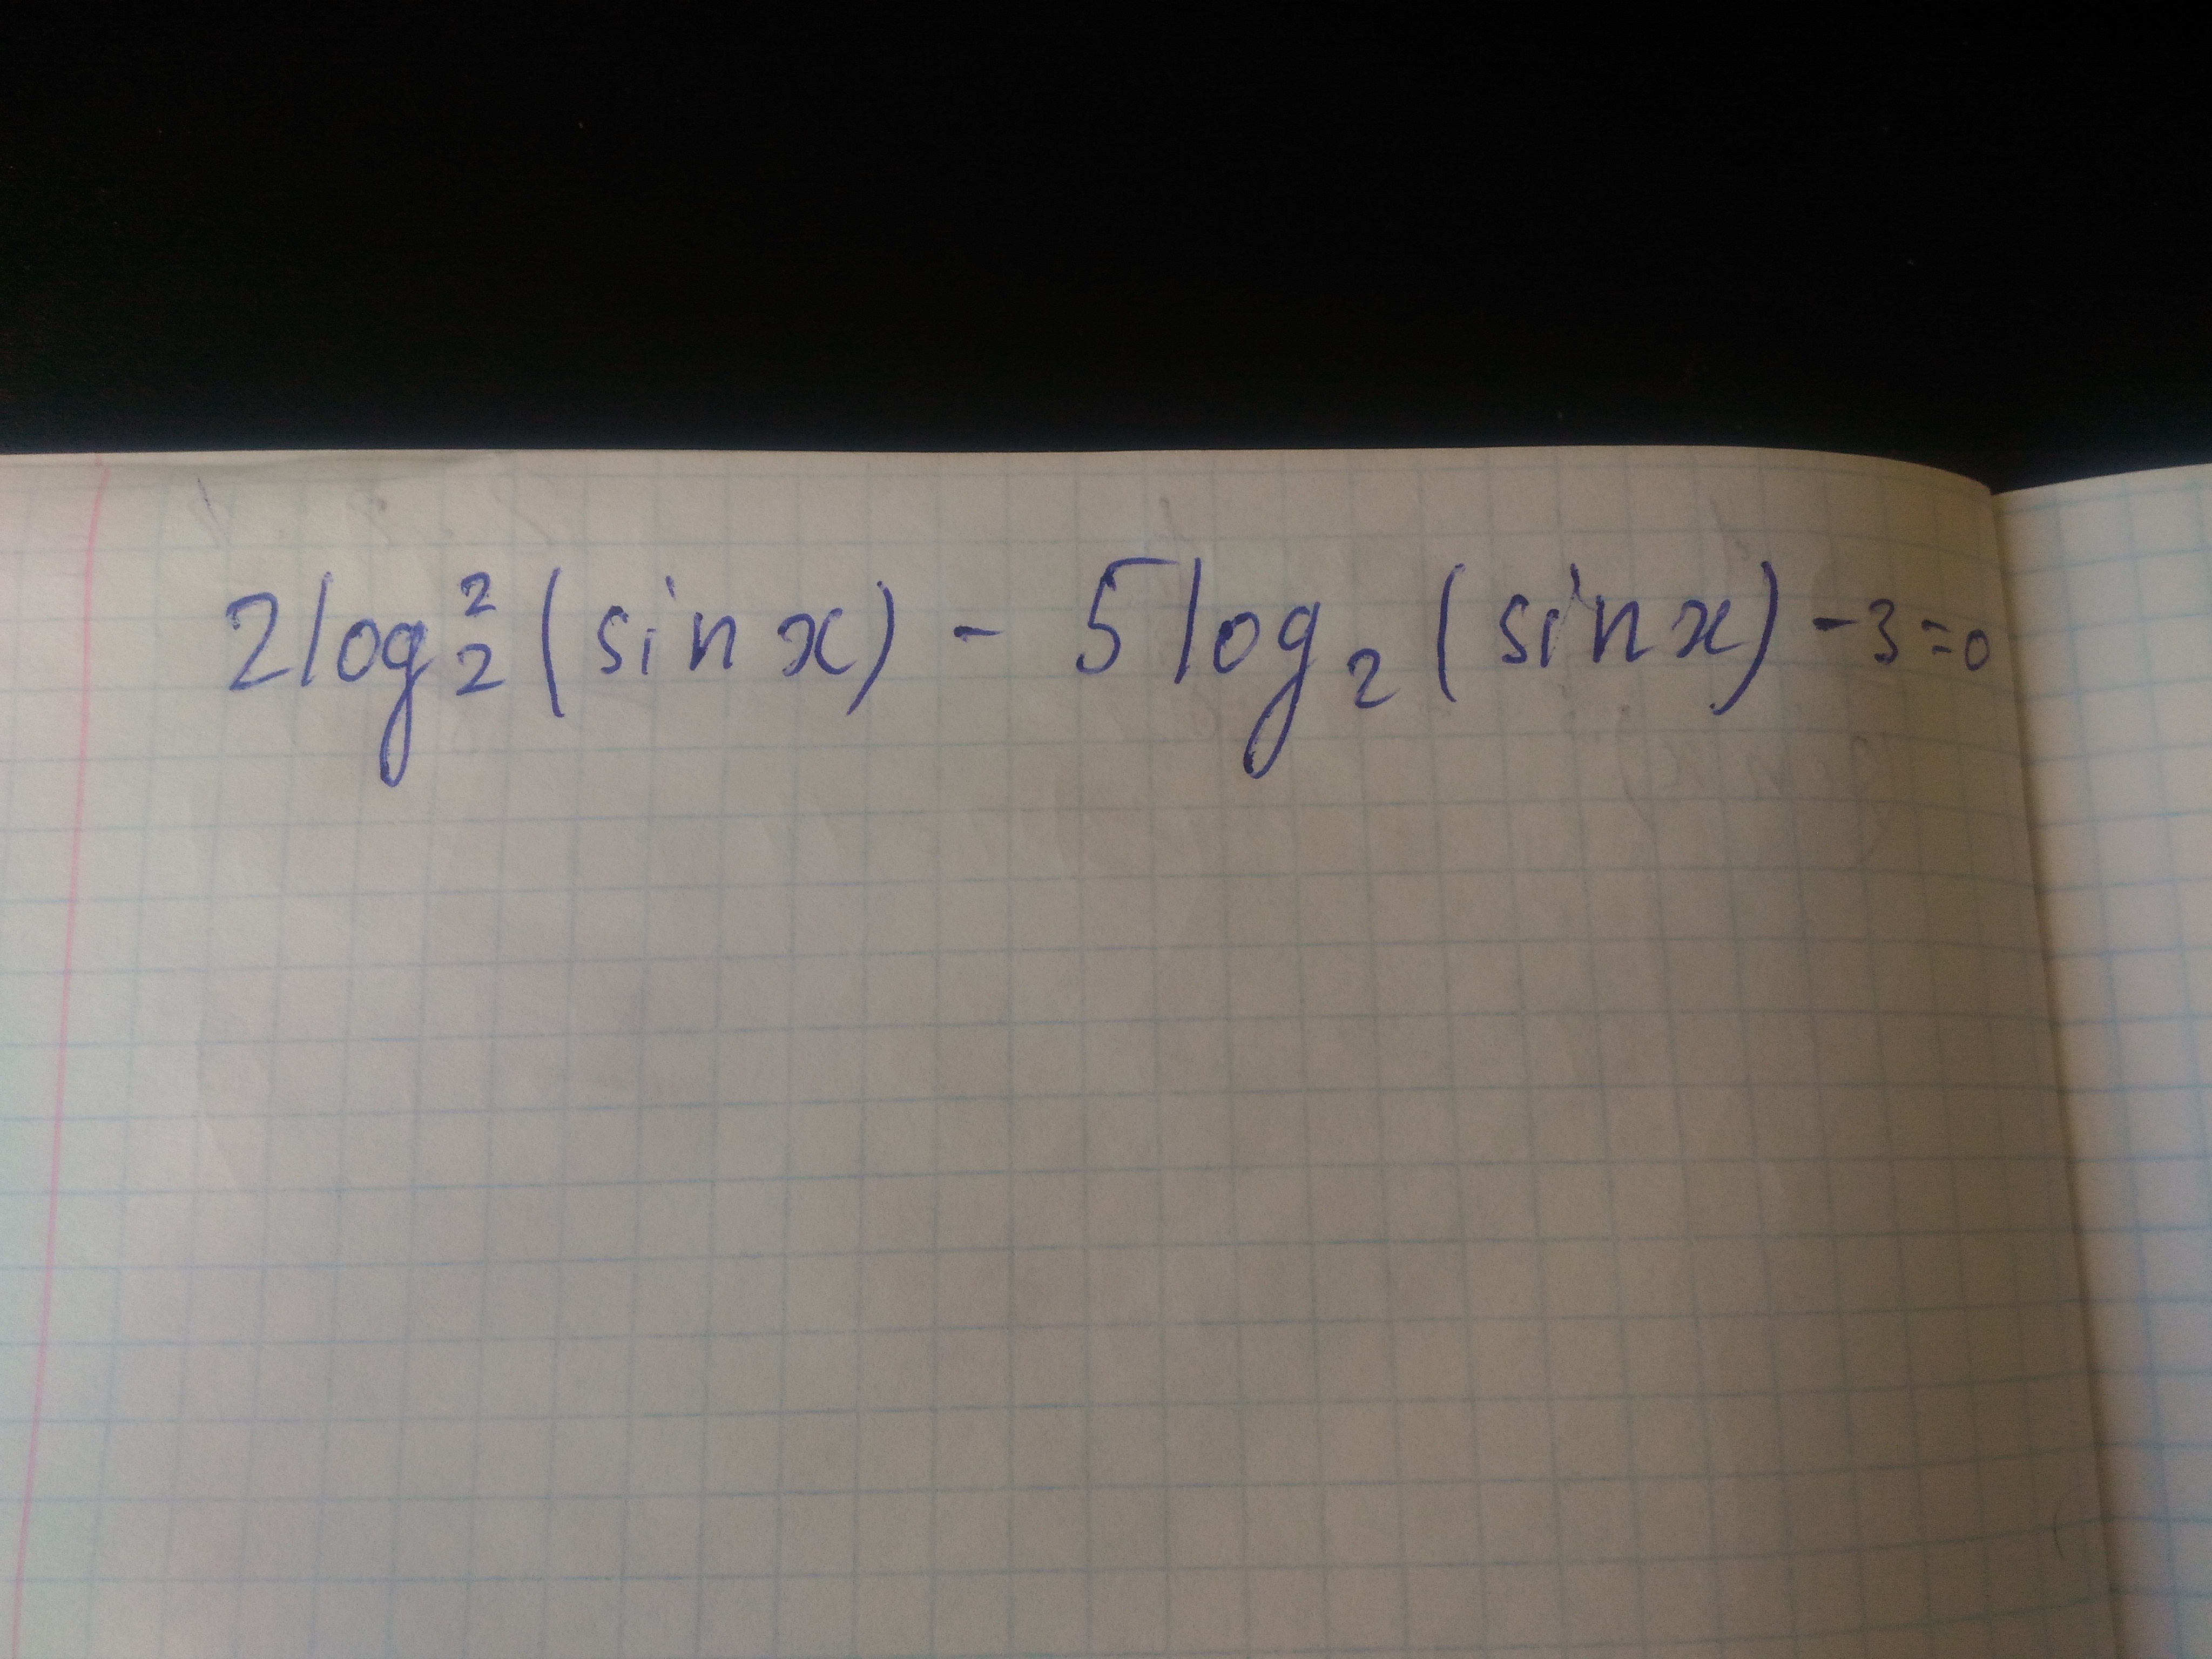 2log₂²(sin x) - 5log₂(sin x) -3=0